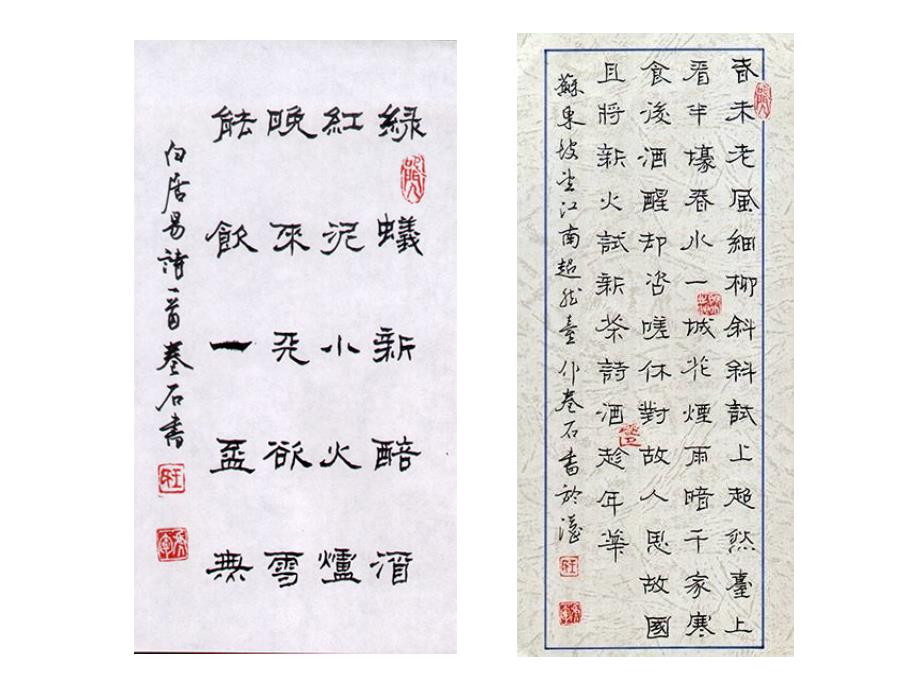 綠蟻新醅酒
紅泥小火爐
晚來天欲雪
能飲一盃無
白居易詩一首卷石書
春未老風細柳斜斜試上超然臺上
看半壕春水一城花煙雨暗千家寒
食後酒醒却咨嗟休對故人思故國
且將新火試新茶詩酒趁年華
蘇東坡望江南超然臺作卷石書於